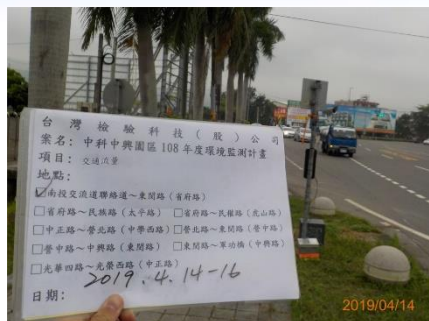 台灣檢驗科技(股)公司
案名：中科中興園區 108 年度環境監測計畫
項目：交通流量
地點：
☑南投交流道聯絡道～東閔路（省府路）
□省府路～民族路（太平路） □省府路～民權路（虎山路）
□中正路～營北路（中學西路） □營北路～東閔路（營中路）
□營中路～中興路（東閔路） □東閔路～軍功橋（中興路）
□光華四路～光榮西路（中正路）
日期：2019.4.14-16
2019/04/14